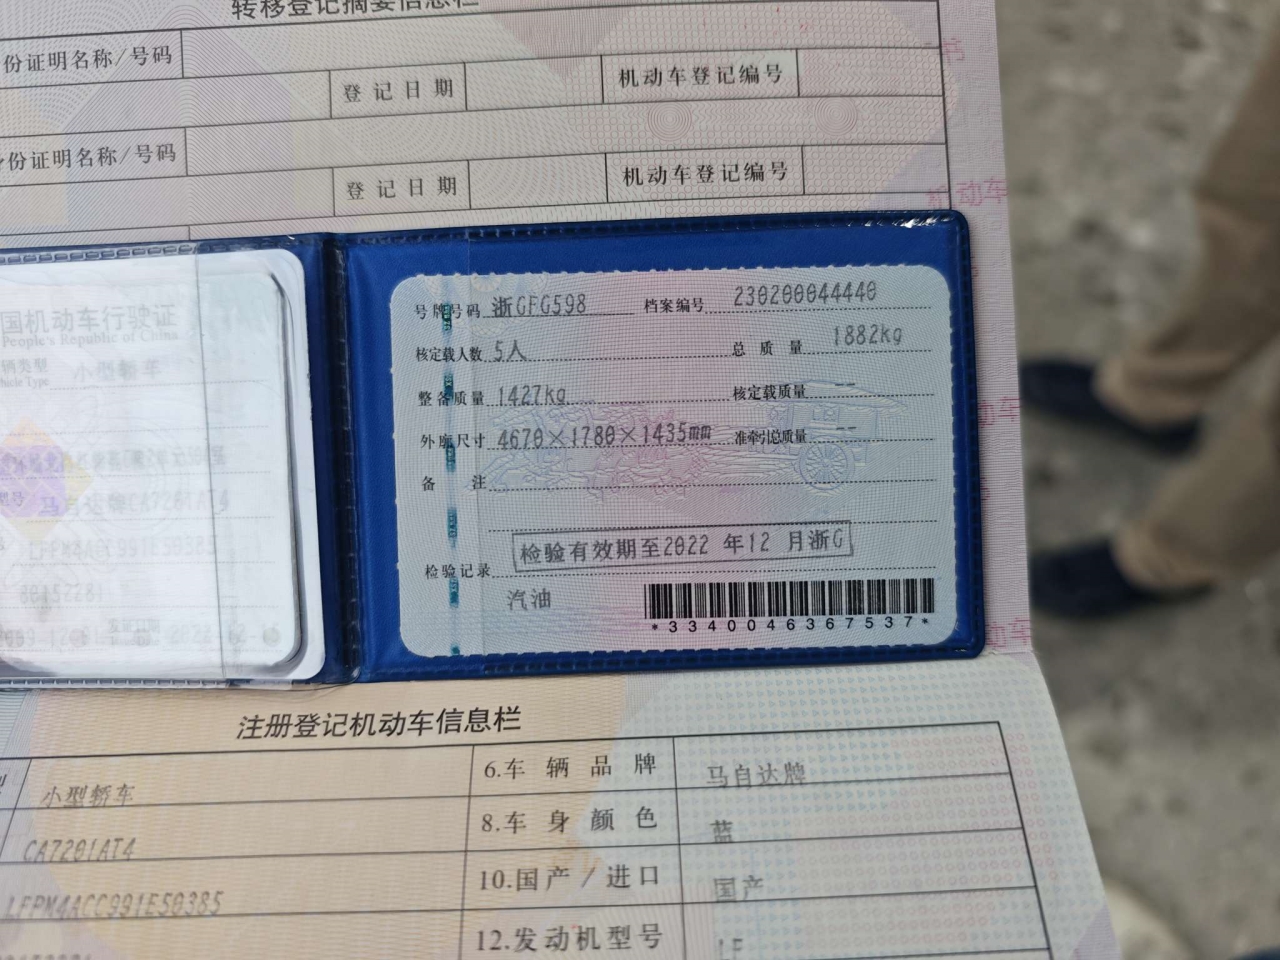 转移登记摘要信息栏
份证明名称/号码
登记日期
机动车登记编号
身份证明名称/号码
登记日期
机动车登记编号
机动车
国机动车行驶证
People's Republic of China
辆类型 小型轿车
hicle Type
马自达牌CA7201AT4
LFPM4ACC991E50385
2022-12-1
号牌号码 浙GFG598 档案编号 230200044440
核定载人数 5人 总质量 1882kg
整备质量 1427kg 核定载质量 --
外廓尺寸 4670×1780×1435mm 准牵引总质量 --
备注
检验有效期至2022 年12 月浙G
检验记录
汽油
*3340046367537*
动车
动车
注册登记机动车信息栏
小型轿车 6.车辆品牌 马自达牌
CA7201AT4 8.车身颜色 蓝
LFPM4ACC991E50385 10.国产/进口 国产
12.发动机型号